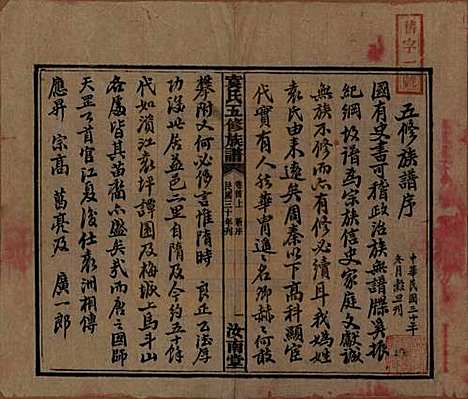 五修族譜序
中華民國三十年
冬月穀旦刊
國有史書可稽政治族無譜牒莫振
紀綱故譜為宗族信史家庭文獻誠
無族不修而有修必續耳我媯姓
袁氏由来遠矣周秦以下高科顯宦
代實有人
名卿赫
何敢
袁氏五修族譜
卷首上
新序
民國三十年刊
一
汝南堂
攀附又何必侈言惟隋時 良正公落厚
功泼地居孟邑二里自隋及今約五十餘
代如濱江袁坪譚園及梅城上馬斗山
各處皆其苗裔不亦盛矣哉而唐之國師
天罡公首官江夏後仕袁洲相傳
應昇 宗高 萬亮及 廣一郎
舊字一號